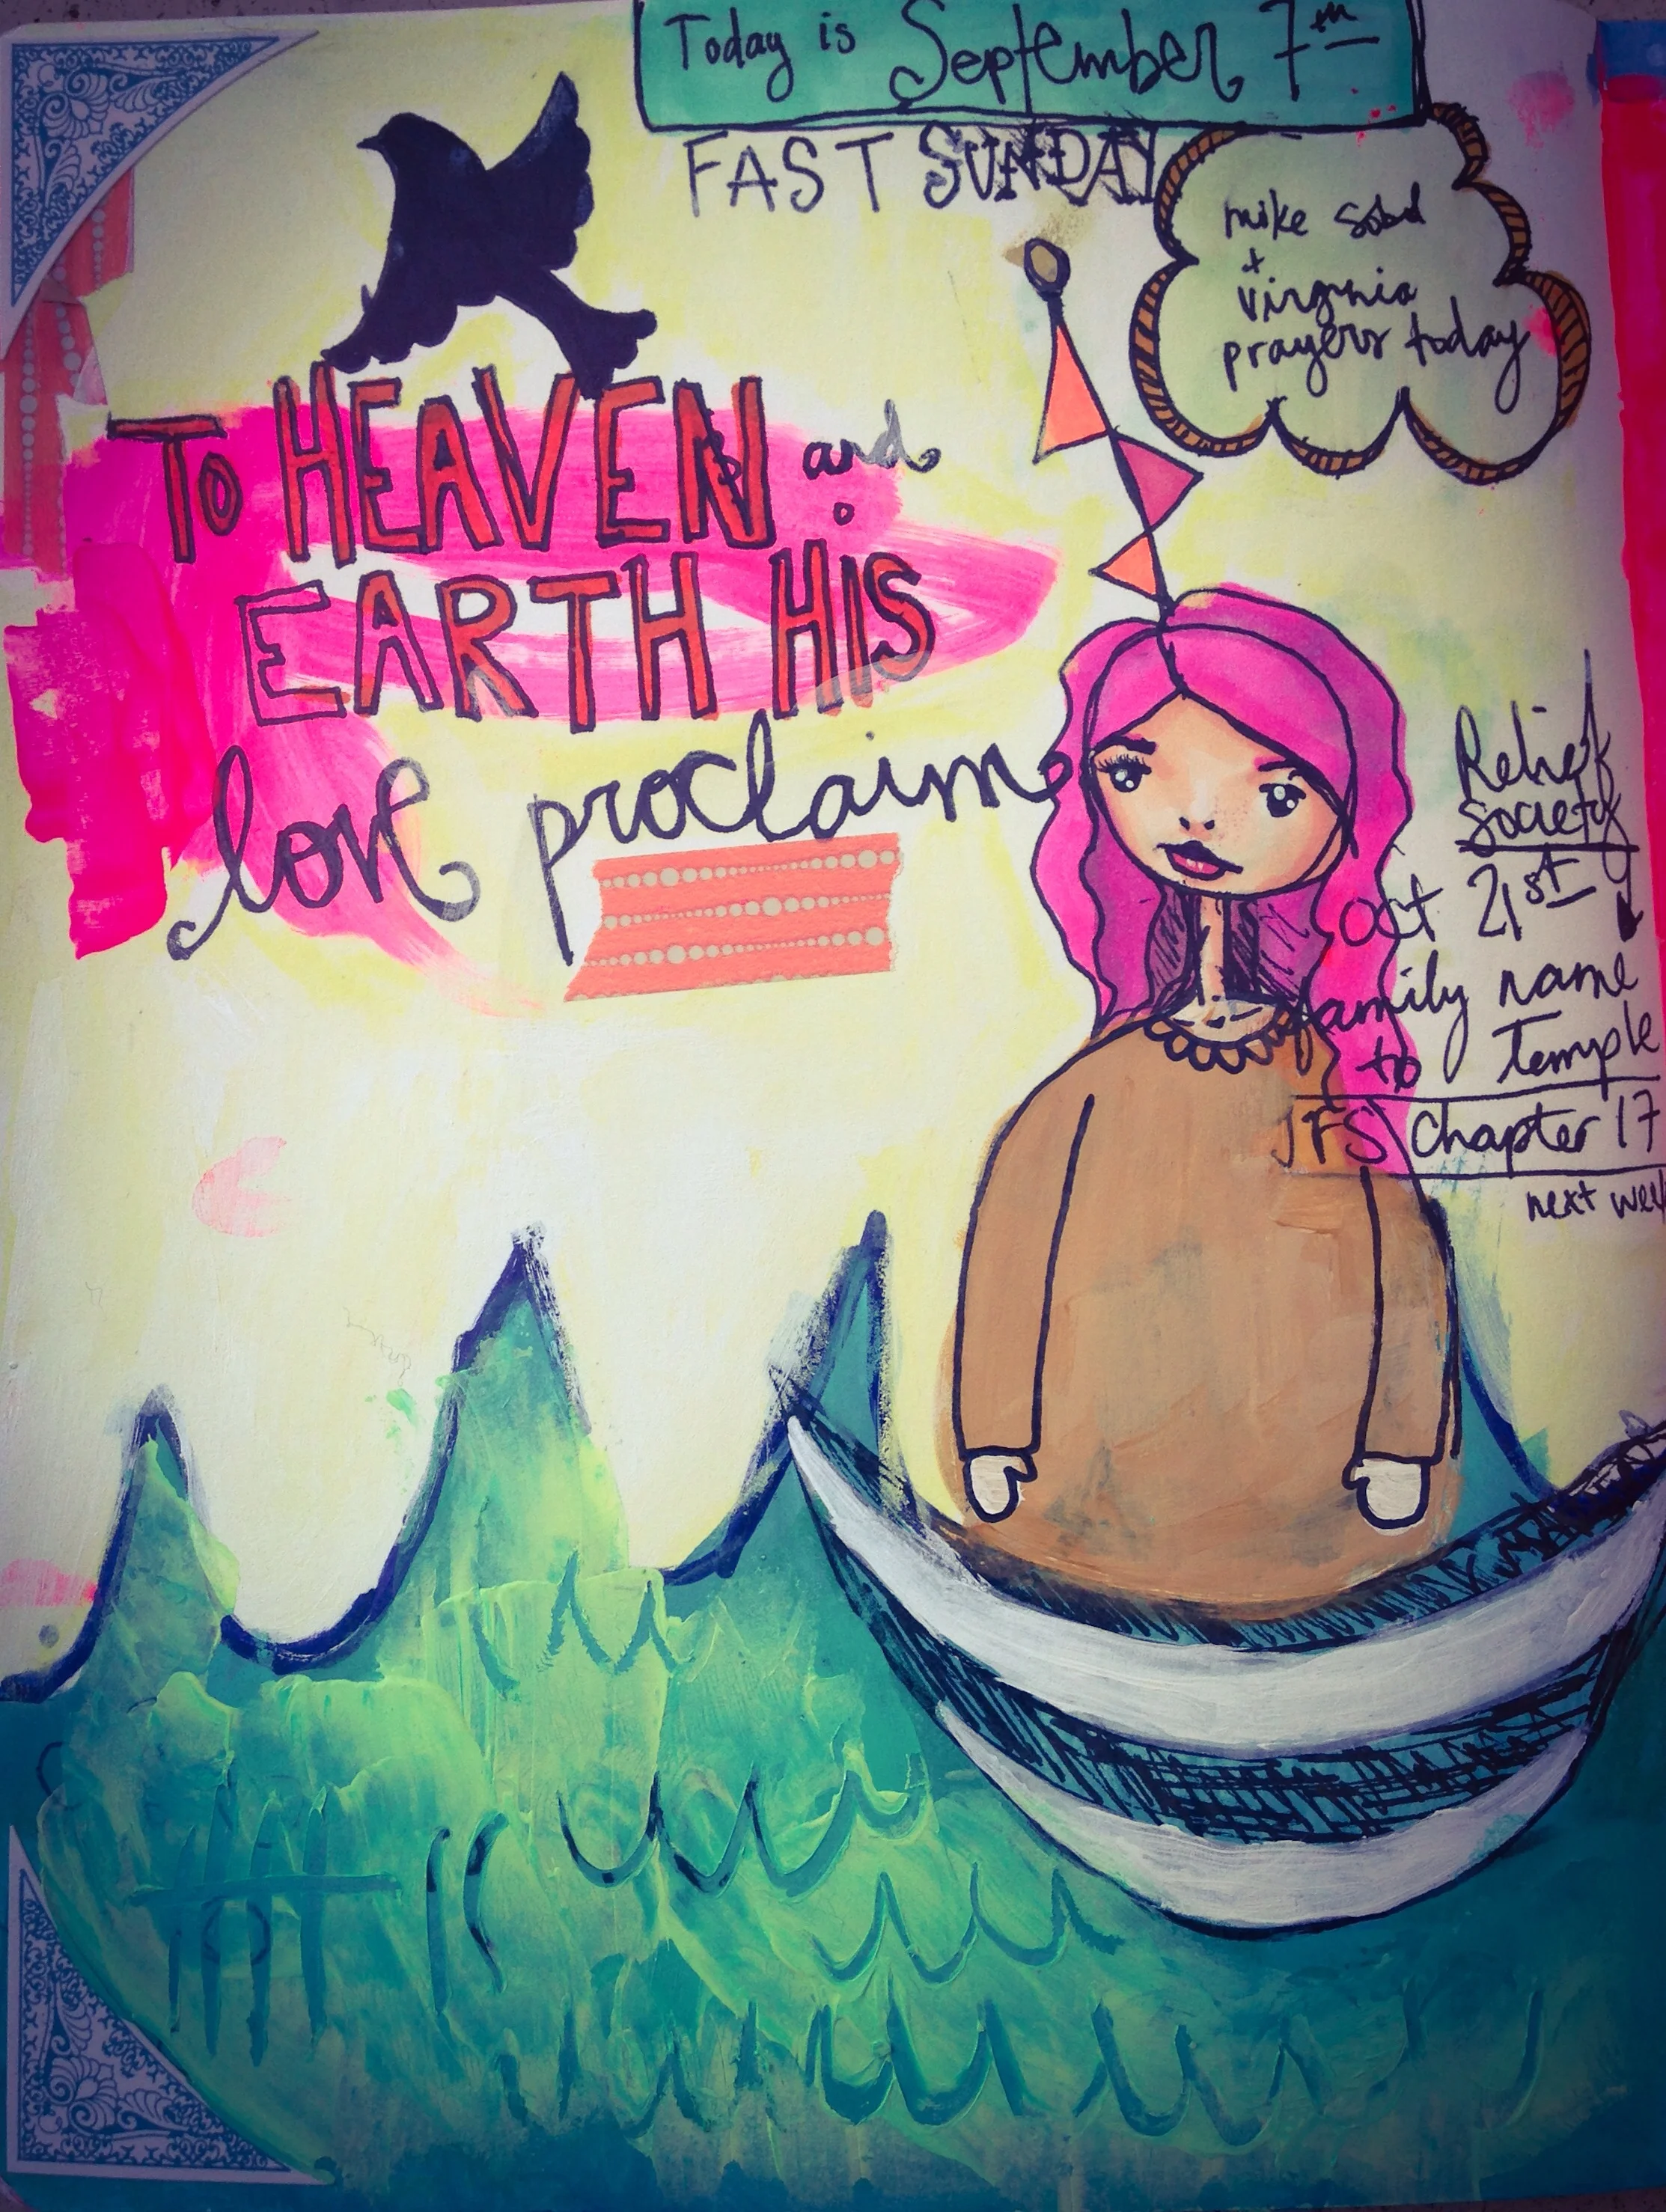 Today is September 7th
FAST SUNDAY
mike
+
virginia
prayers today
TO HEAVEN and
EARTH HIS
love proclaim
Relief
Society
oct 21st
family name
to Temple
JFS chapter 17
next week